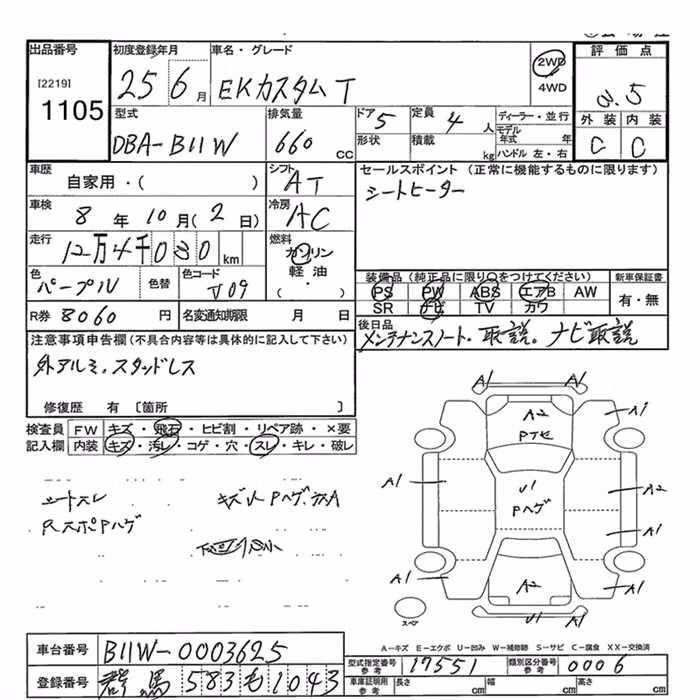 出品番号 初度登録年月 車名・グレード 評価点
[2219] 1105 25 6月 EKカスタムT 2WD 4WD 3.5
型式 排気量 ドア 5 定員 4人 ディーラー・並行 外装 内装
DBA-B11W 660cc 形状 積載 kg モデル年式 年 ハンドル 左・右 C C
車歴 シフト セールスポイント (正常に機能するものに限ります)
自家用・( ) AT シートヒーター
車検 8年10月(2日) 冷房 AC
走行 12万4千030km 燃料 ガソリン 軽油・( )
色 色替 色コード 装備品(純正品に限り○をつけてください) 新車保証書
パープル J09 PS PW ABS エアB AW 有・無
R券 8060円 名変通知期限 月 日 SR ナビ TV カワ
注意事項申告欄(不具合内容等は具体的に記入して下さい) 後日品
外アルミ、スタッドレス メンテナンスノート・取説。ナビ取説
修復歴 有 [箇所 ]
検査員 FW キズ・飛石・ヒビ割・リペア跡・×要
記入欄 内装 キズ・汚レ・コゲ・穴・スレ・キレ・破レ
シートスレ キズ凹Pハゲ、
RスポPハゲ
A1 A1
A2 A1
A1 U1 A2
Pハゲ A1
A1 A2 A1
U1 A1
スペア
A-キズ E-エクボ U-凹み W-補修跡 S-サビ C-腐食 XX-交換済
車台番号 B11W-0003625
型式指定番号 参考 17551 類別区分番号 参考 0006
登録番号 群馬 583 も 1043
車庫証明用 参考 長さ cm 幅 cm 高さ cm